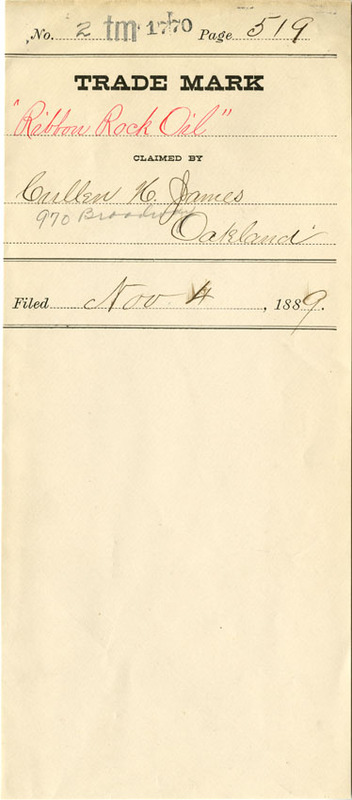 No. 2 tm 1770 Page 519
TRADE MARK
"Ribbon Rock Oil"
CLAIMED BY
Cullen K. James
970 Broadway
Oakland
Filed Nov 4, 1889.